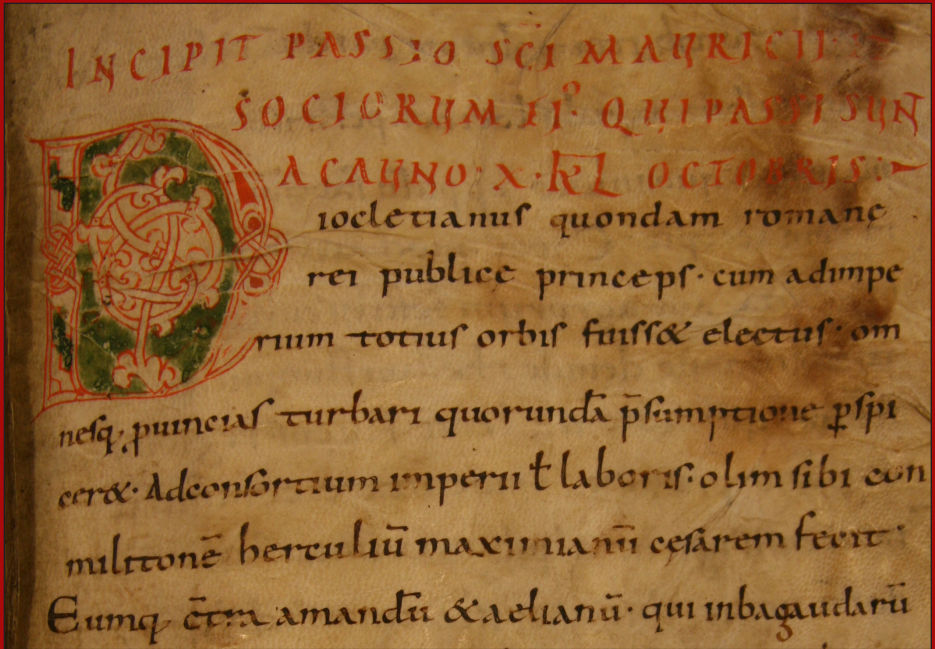 INCIPIT PASSIO SC̄I MAURICII
SOCIORUM EIꝰ· QUI PASSI SUNT
ACAUNO· X· KL̄ OCTOBRIS:
Diocletianus quondam romane
rei publice princeps· cum adimpe
rium totius orbis fuiss& electus· om
nesq; ꝓuincias turbari quorundā p̄sumptione ꝑspi
cer&· Adconsortium imperii ł laboris· olim sibi con
militonē herculiū maximianū cęsarem fecit·
Eumq; c̄tra amandū &aelianū· qui inbagaudarū